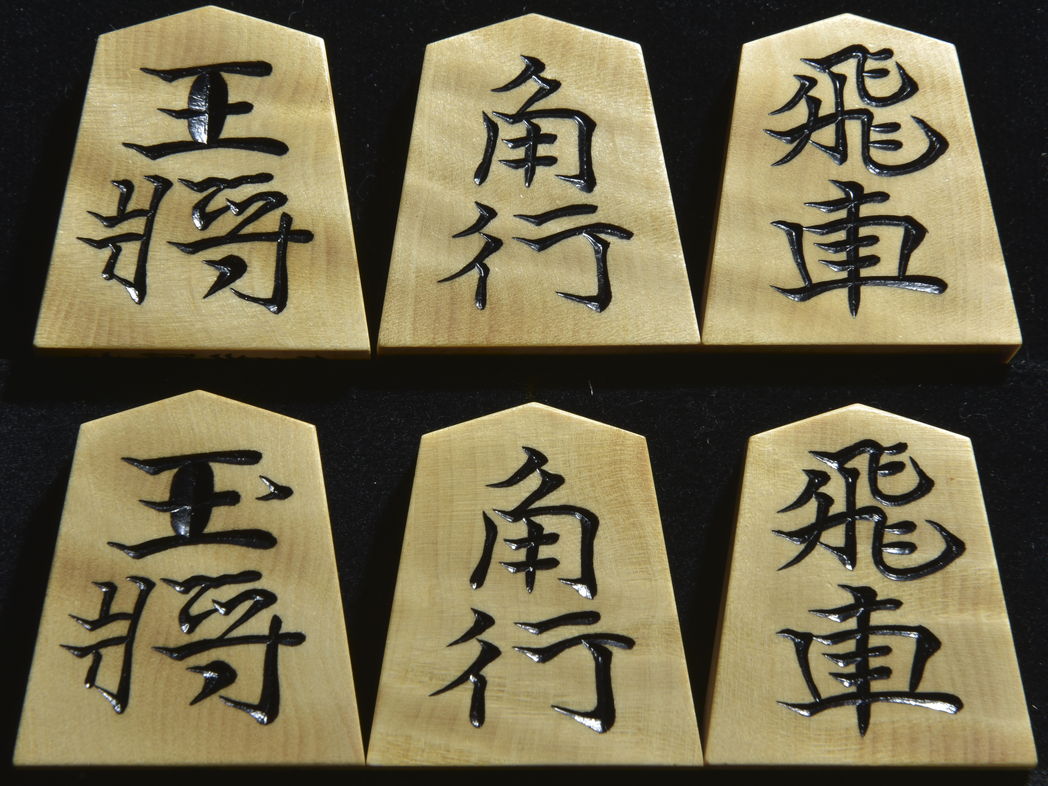 王將
角行
飛車
玉將
角行
飛車